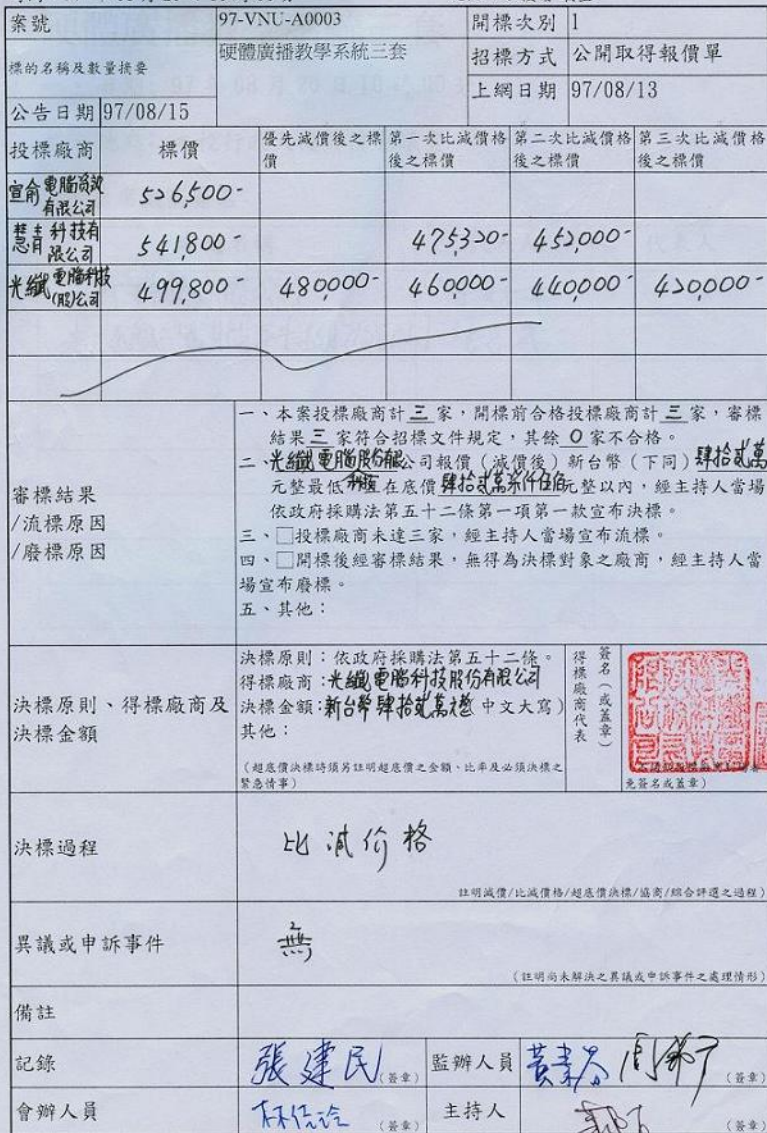 案號 97-VNU-A0003 開標次別 1
標的名稱及數量摘要 硬體廣播教學系統三套 招標方式 公開取得報價單
上網日期 97/08/13
公告日期 97/08/15
投標廠商 標價 優先減價後之標價 第一次比減價格後之標價 第二次比減價格後之標價 第三次比減價格後之標價
宣俞電腦 有限公司 526,500-
慧青科技有限公司 541,800- 475,320- 452,000-
光纖電腦科技(股)公司 499,800- 480,000- 460,000- 440,000- 420,000-
審標結果
/流標原因
/廢標原因
一、本案投標廠商計三家,開標前合格投標廠商計三家,審標
結果三家符合招標文件規定,其餘0家不合格。
二、光纖電腦科技股份有限公司報價(減價後)新台幣(下同)肆拾貳萬
元整最低,且在底價肆拾貳萬 仟伍佰元整以內,經主持人當場
依政府採購法第五十二條第一項第一款宣布決標。
三、□投標廠商未達三家,經主持人當場宣布流標。
四、□開標後經審標結果,無得為決標對象之廠商,經主持人當
場宣布廢標。
五、其他:
決標原則、得標廠商及
決標金額
決標原則:依政府採購法第五十二條。
得標廠商:光纖電腦科技股份有限公司
決標金額:新台幣肆拾貳萬元整(中文大寫)
其他:
(超底價決標時須另註明超底價之金額、比率及必須決標之
緊急情事)
得標廠商代表
簽名(或蓋章)
免簽名或蓋章)
決標過程 比減價格
註明減價/比減價格/超底價決標/協商/綜合評選之過程)
異議或申訴事件 無
(註明尚未解決之異議或申訴事件之處理情形)
備註
記錄 張建民(簽章) 監辦人員 (簽章)
會辦人員 (簽章) 主持人 (簽章)